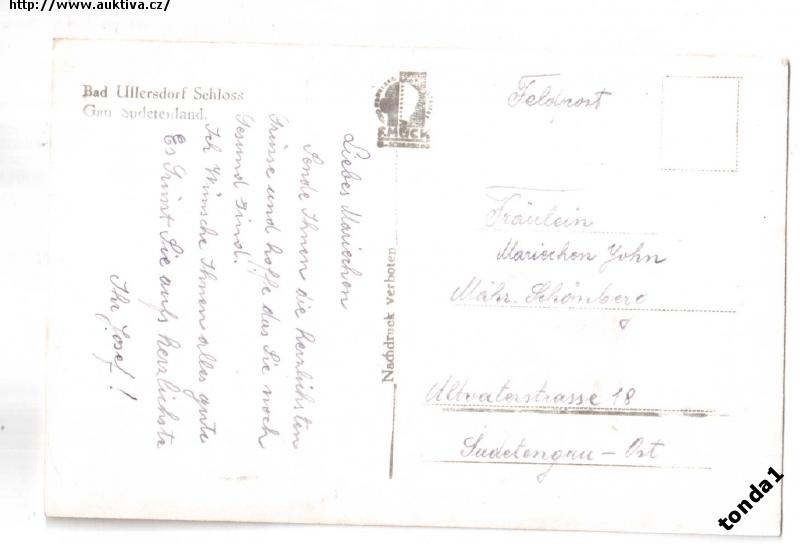 http://www.auktiva.cz/
Bad Ullersdorf Schloss
Gau Sudetenland.
Liebes Mariechen
Sende Ihnen die herzlichsten
Grüsse und hoffe das Sie noch
Gesund sind.
Ich Wünsche Ihnen alles gute
Es Grüsst Sie aufs herzlichste
Ihr Josef!
Nachdruck verboten
F. MÜCK
Feldpost
Fräulein
Mariechen John
Mähr. Schönberg
Altvaterstrasse 18
Sudetengau - Ost
tonda1